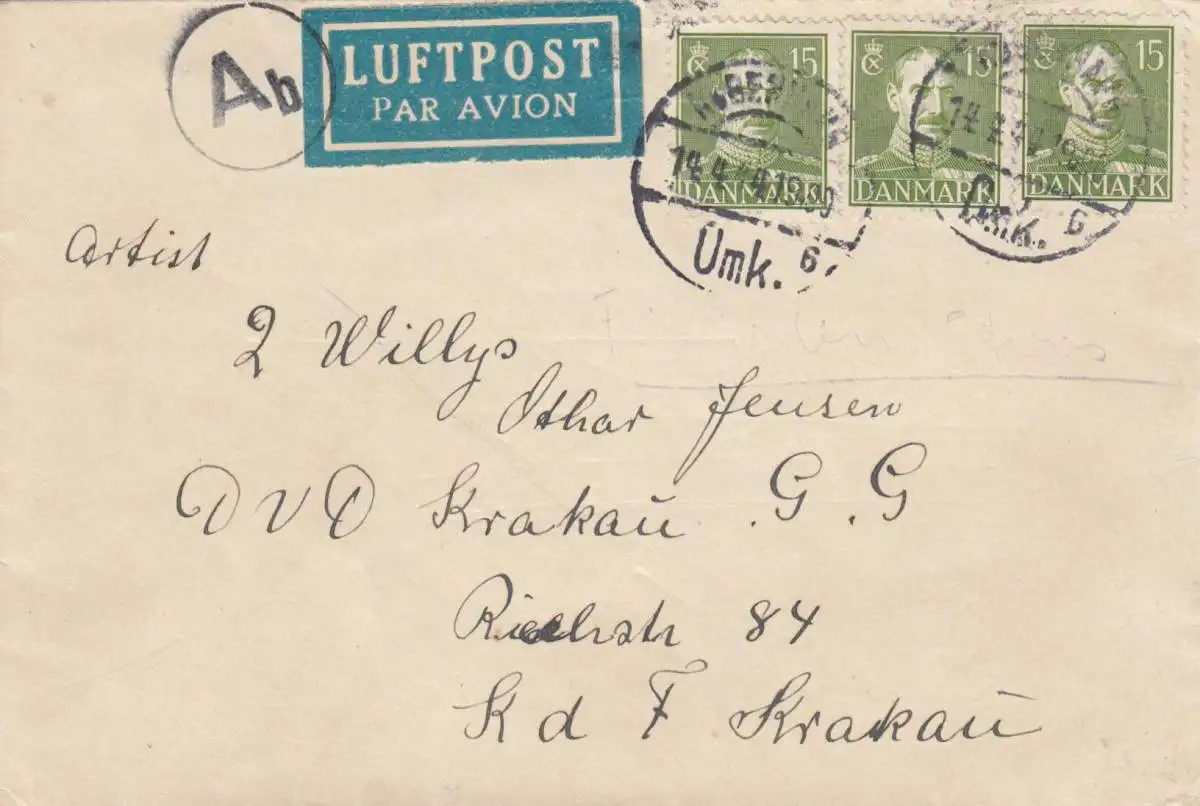 Ab
LUFTPOST
PAR AVION
15 15 15
DANMARK DANMARK DANMARK
KØBENHAVN
14.4.44.19.00
Umk. 6
Omk. 6
Artist
2 Willys
Othar Jensen
DVD Krakau . G . G
Reichstr 84
K d F Krakau